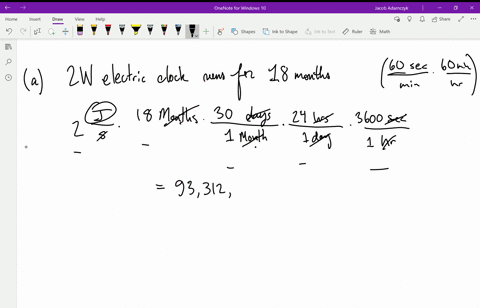 OneNote for Windows 10
Jacob Adamczyk
File Home Insert Draw View Help
Shapes Ink to Shape Ink to Text Math
(a) 2W electric clock runs for 18 months (60 sec/min · 60 min/hr)
2 J/s · 18 Months · 30 days/1 Month · 24 hrs/1 day · 3600 sec/1 hr
= 93,312,